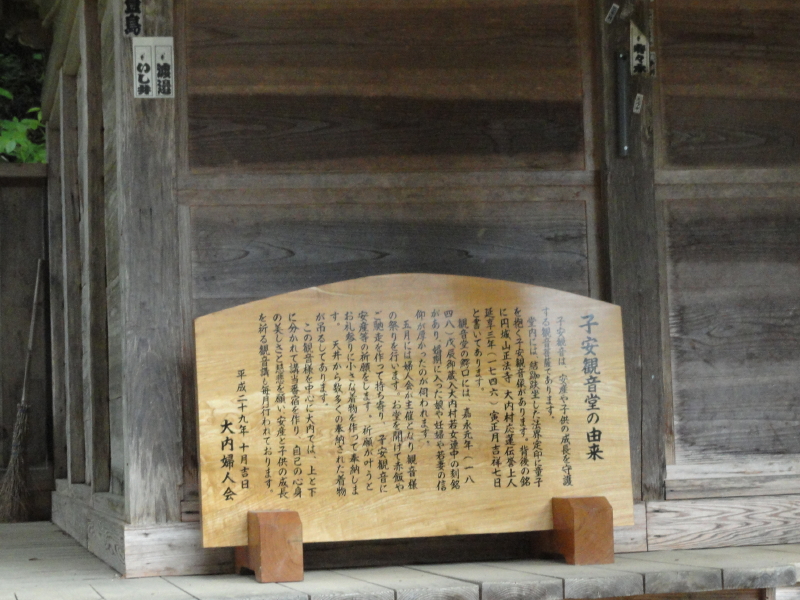 子安観音堂の由来
子安観音は、安産や子供の成長を守護
する観音菩薩であります。
堂内には、結跏趺坐した法界定印に童子
を抱く子安観音様があります。背後の銘
に円城山正法寺 大内村広蓮伝誉上人
延享三年(一七四六)寅正月吉祥七日
と書いてあります。
観音堂の鰐口には、嘉永元年(一八
四八)戊辰御蔵入大内村若女連中の刻銘
があり、婚期に入った娘や妊婦や若妻の信
仰が厚かったのが伺われます。
五月には婦人会が主催となり、観音様
の祭りを行います。お堂を開けて赤飯や
ご馳走を作って持ち寄り、子安観音に
安産等の祈願をします。祈願が叶うと
お礼参りに小さな着物を作って奉納しま
す。天井から数多くの奉納された着物
が吊るしてあります。
この観音様を中心に大内では、上と下
に分かれて講当番宿を作り、自己の心身
の美しさと旦那を願い安産と子供の成長
を祈る観音講も毎月行われております。
平成二十九年十月吉日
大内婦人会
渡辺
いし井
佐々木